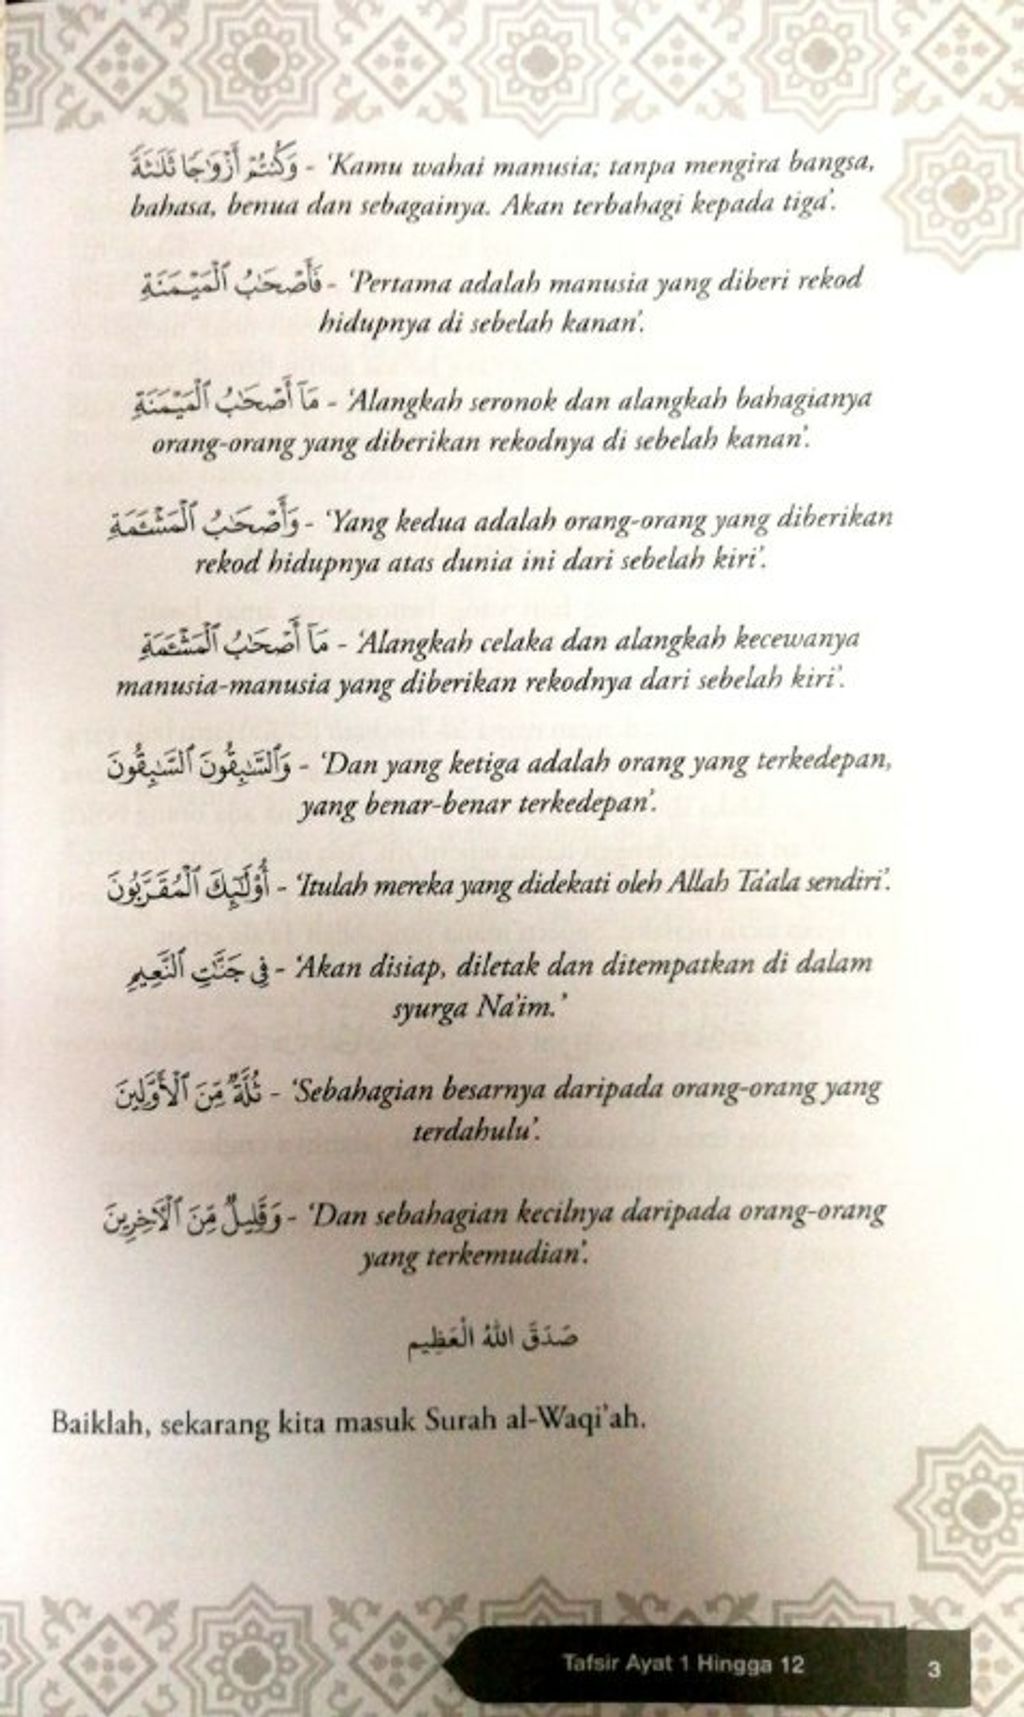 وَكُنتُمْ أَزْوَٰجًا ثَلَٰثَةً - 'Kamu wahai manusia; tanpa mengira bangsa,
bahasa, benua dan sebagainya. Akan terbahagi kepada tiga'.
فَأَصْحَٰبُ ٱلْمَيْمَنَةِ - 'Pertama adalah manusia yang diberi rekod
hidupnya di sebelah kanan'.
مَآ أَصْحَٰبُ ٱلْمَيْمَنَةِ - 'Alangkah seronok dan alangkah bahagianya
orang-orang yang diberikan rekodnya di sebelah kanan'.
وَأَصْحَٰبُ ٱلْمَشْـَٔمَةِ - 'Yang kedua adalah orang-orang yang diberikan
rekod hidupnya atas dunia ini dari sebelah kiri'.
مَآ أَصْحَٰبُ ٱلْمَشْـَٔمَةِ - 'Alangkah celaka dan alangkah kecewanya
manusia-manusia yang diberikan rekodnya dari sebelah kiri'.
وَٱلسَّٰبِقُونَ ٱلسَّٰبِقُونَ - 'Dan yang ketiga adalah orang yang terkedepan,
yang benar-benar terkedepan'.
أُو۟لَٰٓئِكَ ٱلْمُقَرَّبُونَ - 'Itulah mereka yang didekati oleh Allah Ta'ala sendiri'.
فِى جَنَّٰتِ ٱلنَّعِيمِ - 'Akan disiap, diletak dan ditempatkan di dalam
syurga Na'im.'
ثُلَّةٌ مِّنَ ٱلْأَوَّلِينَ - 'Sebahagian besarnya daripada orang-orang yang
terdahulu'.
وَقَلِيلٌ مِّنَ ٱلْـَٔاخِرِينَ - 'Dan sebahagian kecilnya daripada orang-orang
yang terkemudian'.
صَدَقَ اللهُ الْعَظِيم
Baiklah, sekarang kita masuk Surah al-Waqi'ah.
Tafsir Ayat 1 Hingga 12 3